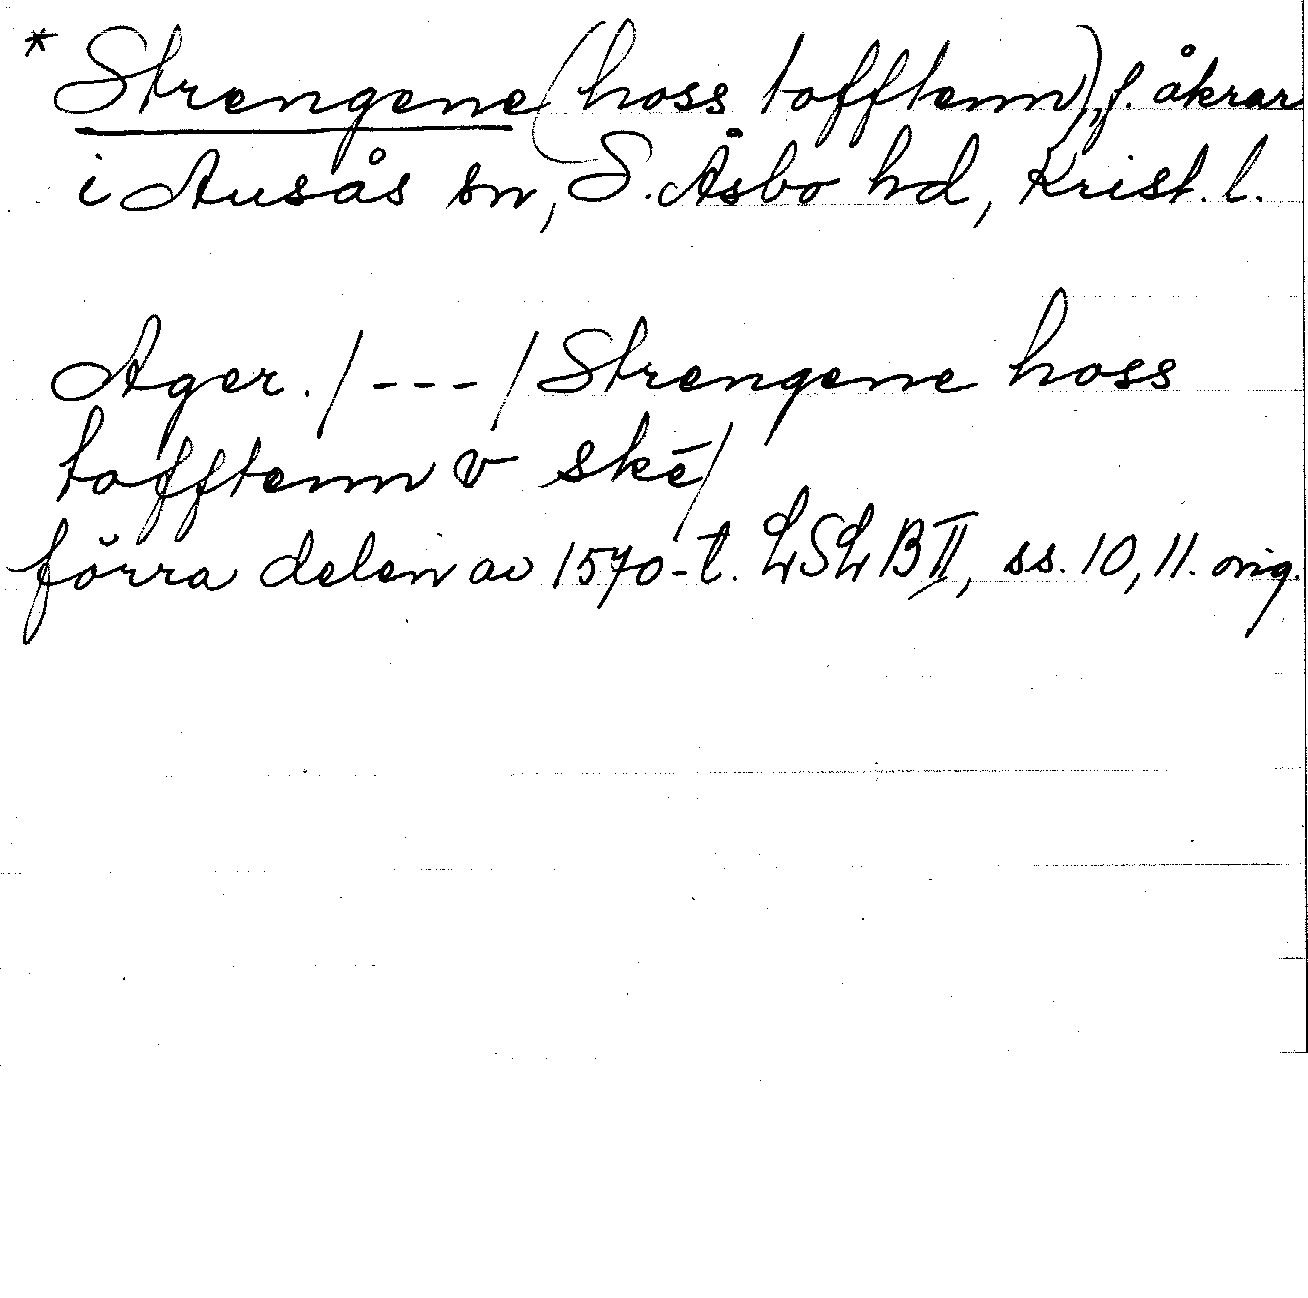 * Strengene (hoss tofftenn), f. åkrar
i Ausås sn, S. Åsbo hd, Krist. l.
Ager. / - - - / Strengene hoss
tofftenn v skē /
förra delen av 1570-t. LSLB II, ss. 10, 11. orig.